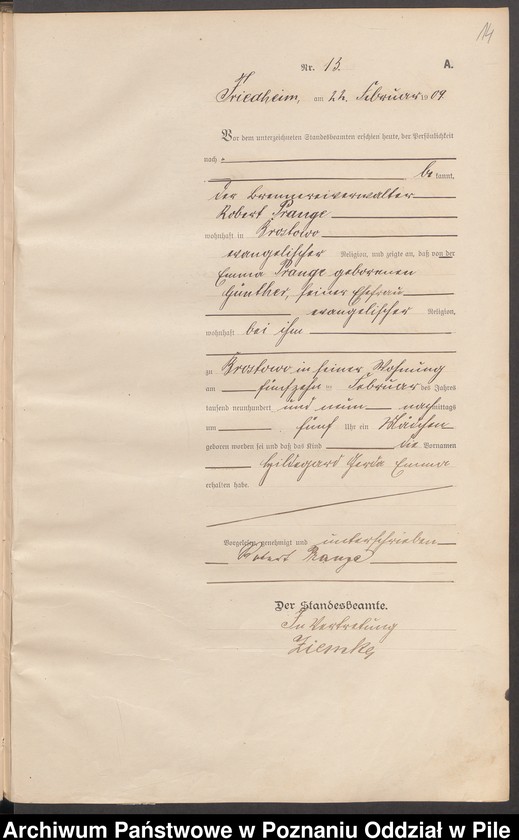 14
Nr. 13.
A.
Friedheim, am 22. Februar 1909
Vor dem unterzeichneten Standesbeamten erschien heute, der Persönlichkeit
nach
be kannt,
der Brennereiverwalter
Robert Prange
wohnhaft in Brostowo
evangelischer Religion, und zeigte an, daß von der
Emma Prange geborenen
Günther, seiner Ehefrau
evangelischer Religion,
wohnhaft bei ihm
zu Brostowo in seiner Wohnung
am fünfzehn ten Februar des Jahres
tausend neunhundert und neun nachmittags
um fünf Uhr ein Mädchen
geboren worden sei und daß das Kind die Vornamen
Hildegard Gerda Emma
erhalten habe.
Vorgelesen, genehmigt und unterschrieben
Robert Prange
Der Standesbeamte.
In Vertretung
Ziemke
Archiwum Państwowe w Poznaniu Oddział w Pile